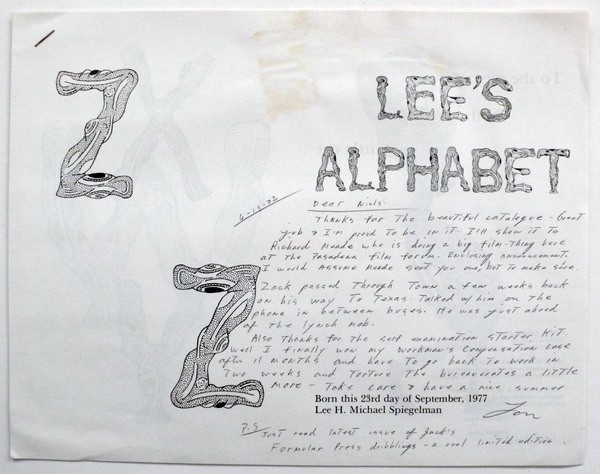 Z
LEE'S
ALPHABET
Dear Niels:
Thanks for the beautiful catalogue - Great
job & I'm proud to be in it. I'll show it to
Richard Meade who is doing a big film-thing here
at the Pasadena film forum. Enclosing announcement.
I would assume Meade sent you one, but to make sure.
Zack passed through town a few weeks back
on his way to Texas. Talked w/ him on the
phone in between buses. He was just ahead
of the lynch mob.
Also thanks for the self examination starter kit.
Well I finally won my workmans compensation case
after 11 months and have to go back to work in
two weeks and torture the bureaucrates a little
more - Take care & have a nice summer
Z
Born this 23rd day of September, 1977
Lee H. Michael Spiegelman
P.S. Just read latest issue of Jack's
Formular Press dribblings - a real limited edition.